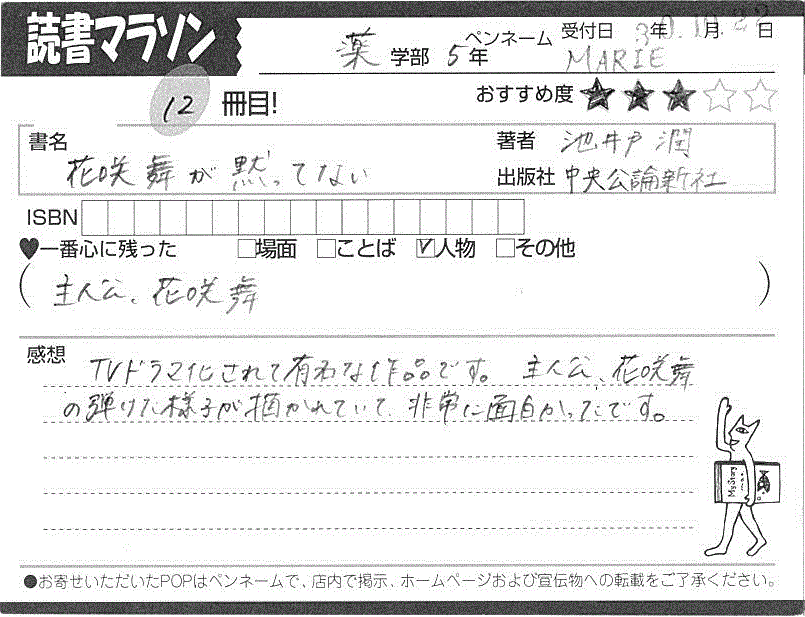 読書マラソン
薬 学部 5年 ペンネーム MARIE 受付日 30年10月22日
12 冊目! おすすめ度 ★★★☆☆
書名 花咲舞が黙ってない
著者 池井戸潤
出版社 中央公論新社
ISBN
♥一番心に残った □場面 □ことば ☑人物 □その他
(主人公、花咲舞)
感想
TVドラマ化されて有名な作品です。主人公、花咲舞
の弾けた様子が描かれていて、非常に面白かったです。
My Story
●お寄せいただいたPOPはペンネームで、店内で掲示、ホームページおよび宣伝物への転載をご了承ください。